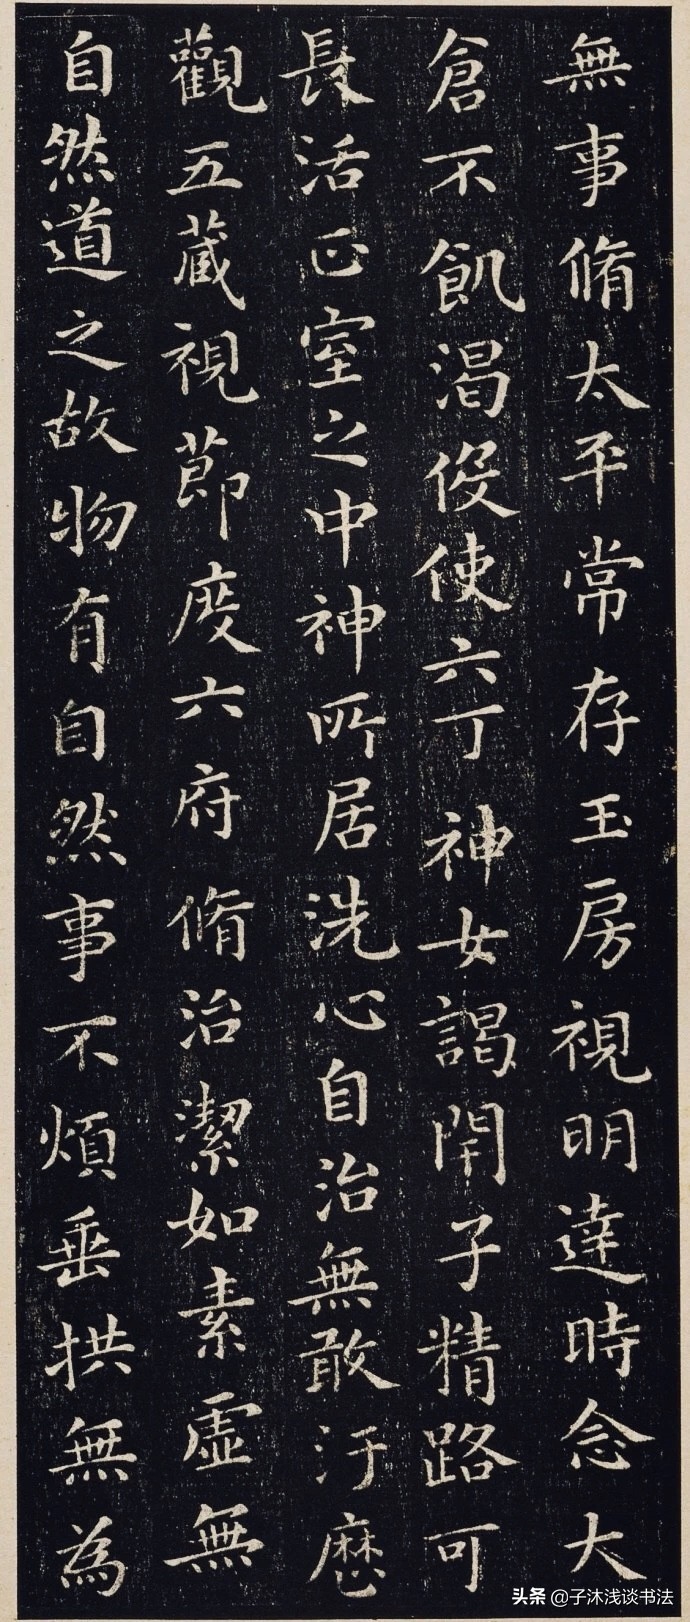 無事脩太平常存玉房視明達時念大
倉不飢渴伇使六丁神女謁閇子精路可
長活正室之中神所居洗心自治無敢汙歷
觀五藏視節度六府脩治潔如素虛無
自然道之故物有自然事不煩垂拱無為
头条 @子沐浅谈书法